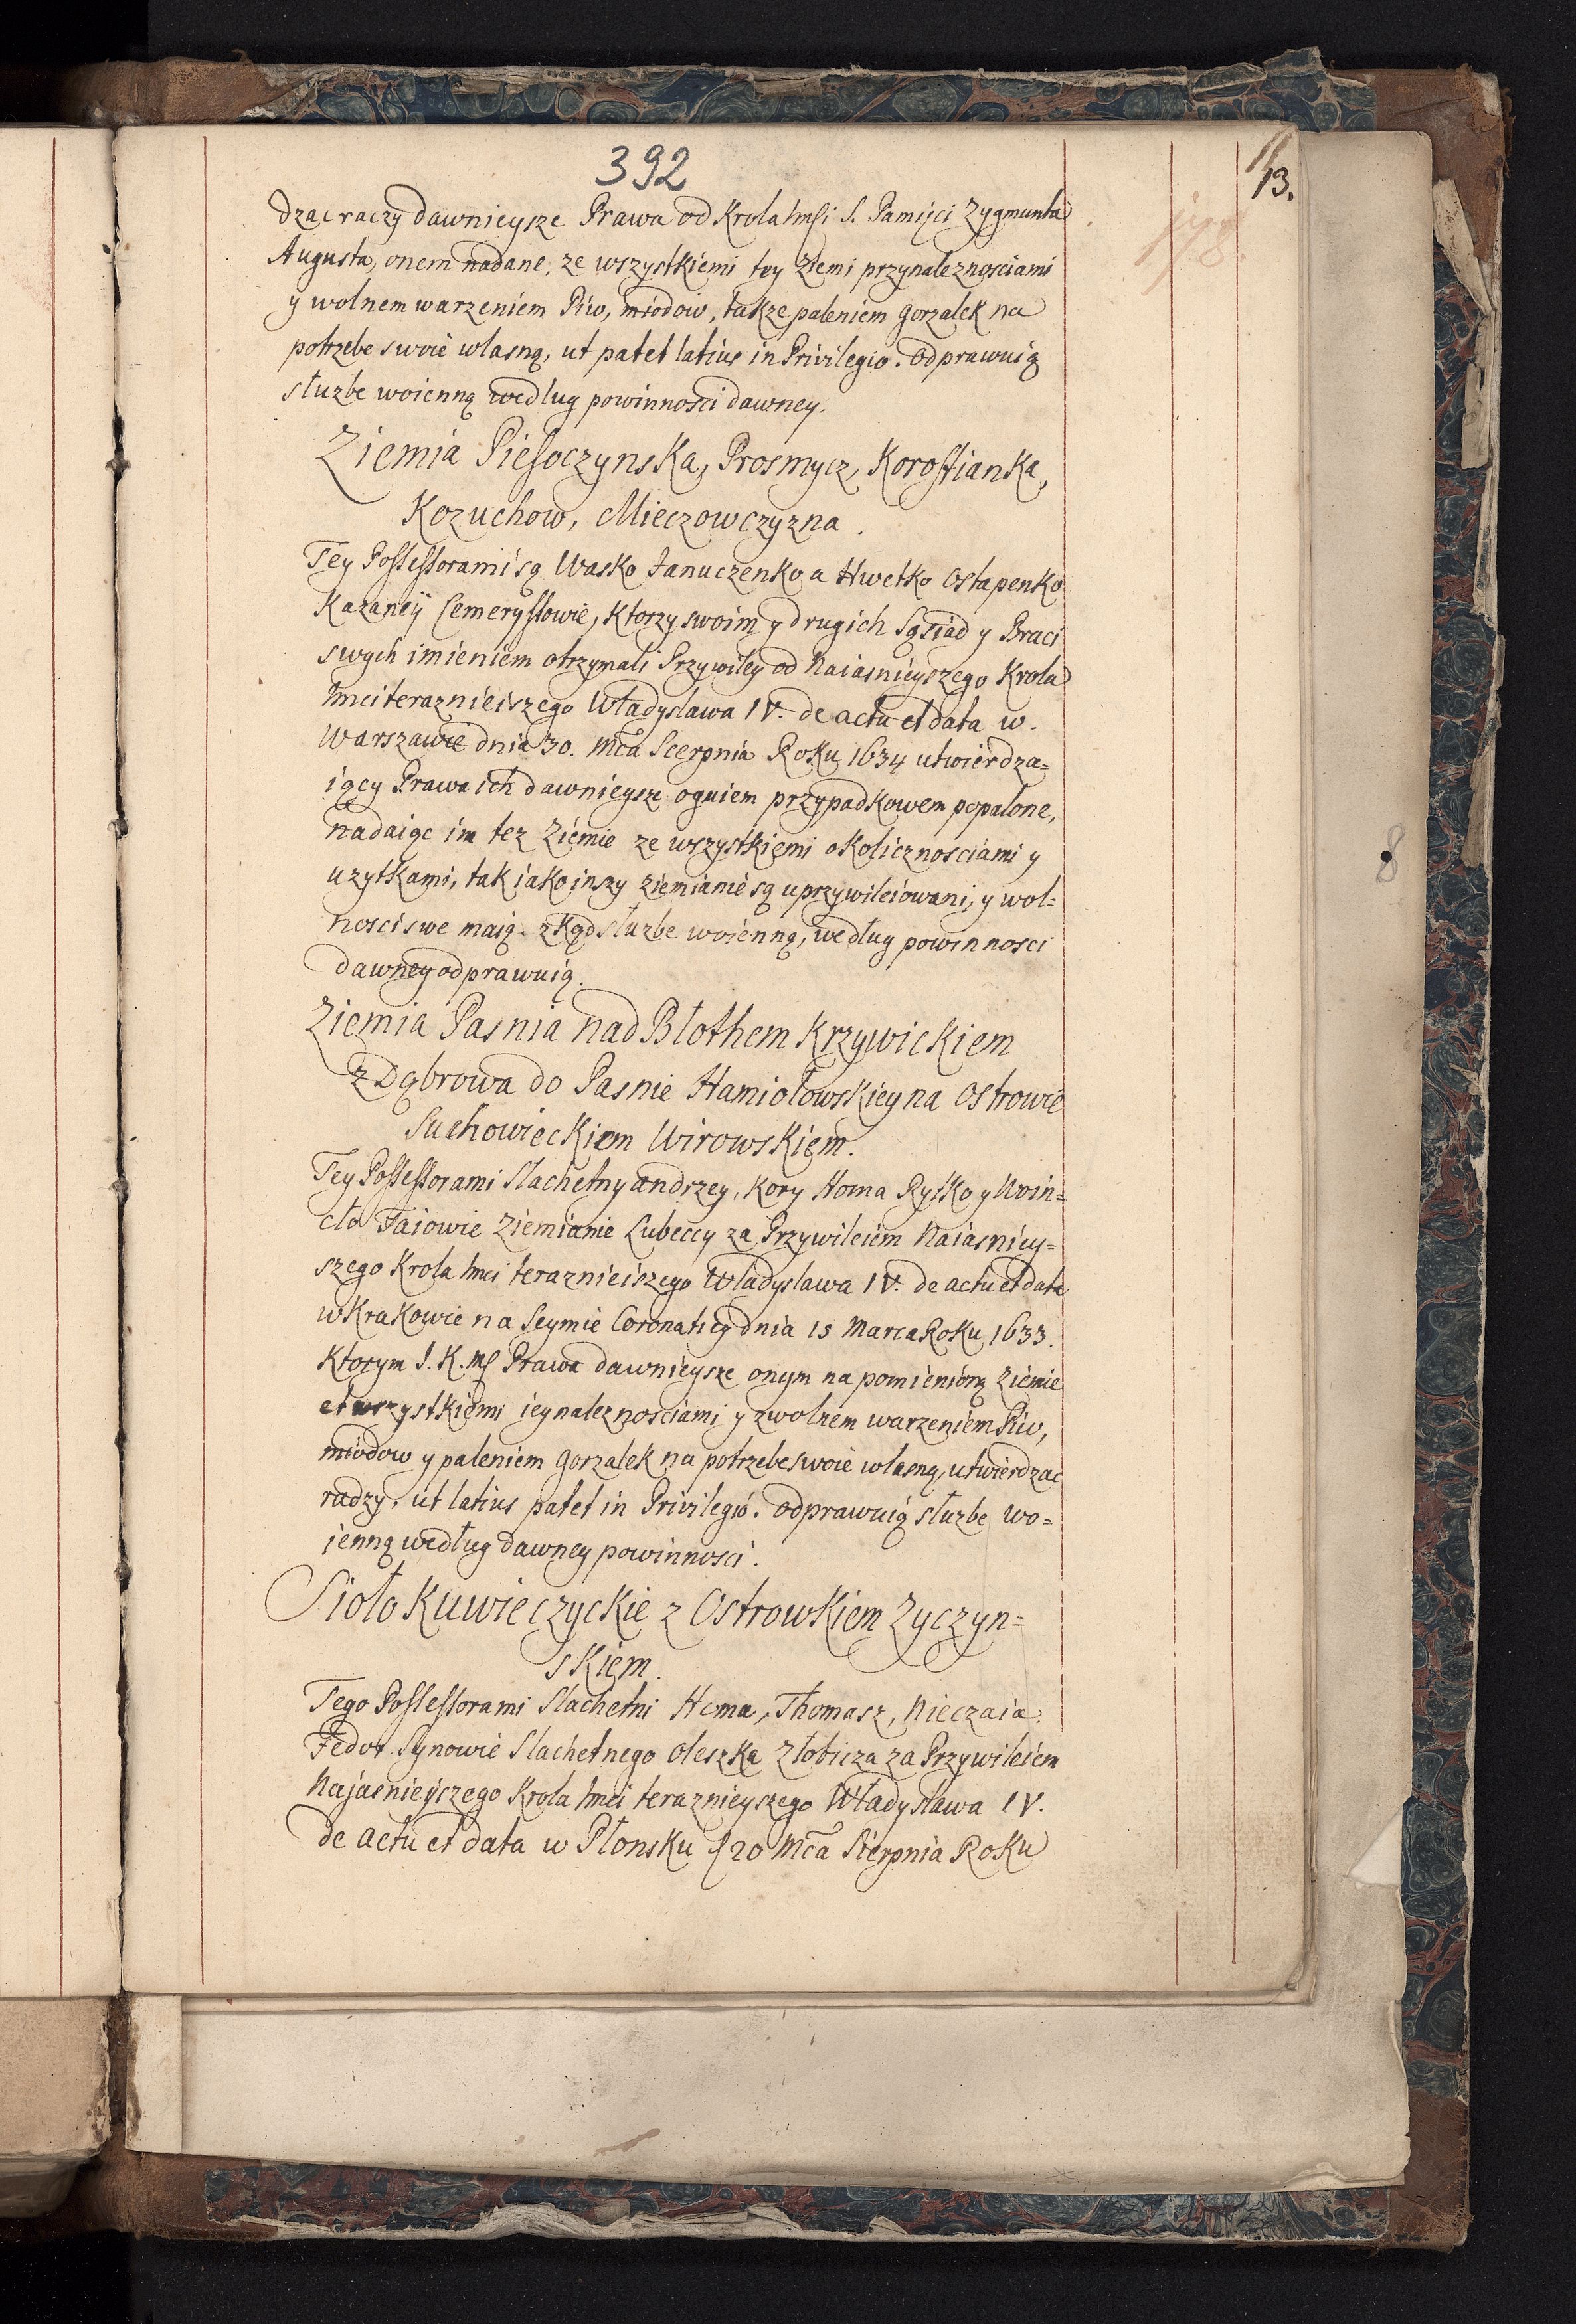 392
13.
178.
dzac raczy dawnieysze Prawa od Krola Jmsi S. Pamięci Zygmunta
Augusta, onem nadane, ze wszystkiemi tey Ziemi przynaleznosciami
y wolnem warzeniem Piw, miodow, takze paleniem gorzalek na
potrzebe swoie własną, ut patet latius in Privilegio. Odprawuią
służbe woienną według powinnosci dawney.
Ziemia Piesoczynska, Prosmycz, Korostianka,
Kozuchow, Mieczowczyzna.
Tey Possessorami są Wasko Januczenko a Hwetko Ostapenko
Kazaneÿ Cemeryssowie, Ktorzy swoim y drugich Sąsiad y Braci
swych imieniem otrzymali Przywiley od Naiasnieyszego Krola
Jmci terazniejszego Władysława IV. de actu et data w.
Warszawie dnia 30. Mca Sierpnia Roku 1634 utwierdza=
iący Prawa ich dawnieysze ogniem przypadkowem popalone,
nadaiąc im tez Ziemie ze wszystkiemi okolicznosciami y
uzytkami, tak iako inszy ziemianie są uprzywileiowani, y wol=
nosci swe maią. zkąd służbe woienną, według powinnosci
dawney odprawuią.
Ziemia Pasnia nad Błothem Krzywickiem
z Dąbrowa do Pasnie Hamiołowskiey na Ostrowie
Suchowieckiem Wirowskiem.
Tey Possessorami Slachetny Andrzey, Kory Homa Rysko y Woin=
cto Faiowie Ziemianie Lubeccy za Przywileiem Naiasniey=
szego Krola Jmci terazniejszego Władysława IV. de actu et data
w Krakowie na Seymie Coronatiey dnia 15 Marca Roku 1633.
Ktorym J. K. Mś Prawa dawnieysze onym na pomienioną Ziemie
et wszystkiemi iey naleznosciami y zwolnem warzeniem Piw,
miodow y paleniem gorzalek na potrzebe swoie własną, utwierdzac
radzy, ut latius patet in Privilegio. Odprawuią służbe wo=
jenną według dawney powinnosci.
Sioło Kuwieczyckie z Ostrowkiem Zyczyn=
skiem.
Tego Possessorami Slachetni Hema, Thomasz, Nieczaia.
Fedor Synowie Slachetnego Oleszka Złobicza za Przywileiem
Najasnieyszego Krola Jmci teraznieyszego Władysława IV.
de actu et data w Płonsku d 20 Mca Sierpnia Roku
8